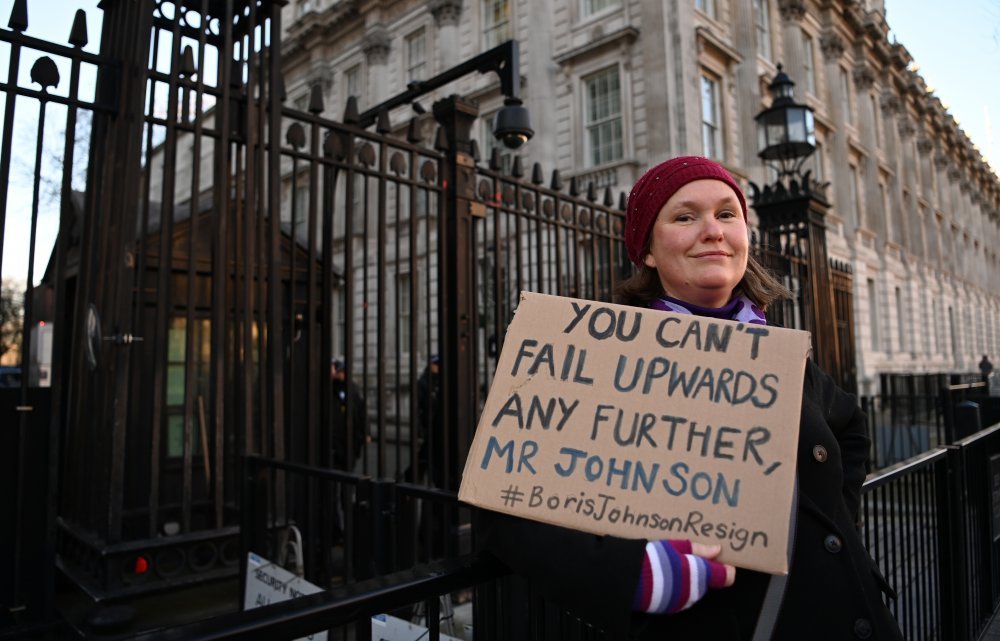 YOU CAN'T
FAIL UPWARDS
ANY FURTHER,
MR JOHNSON
#BorisJohnsonResign
SECURITY
ALL